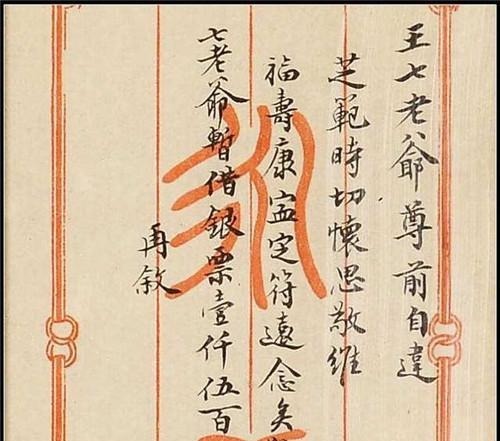 王七老爺尊前自違
芝範時切懷思敬維
福壽康寧定符遠念矣
七老爺暫借銀票壹仟伍百
再敘